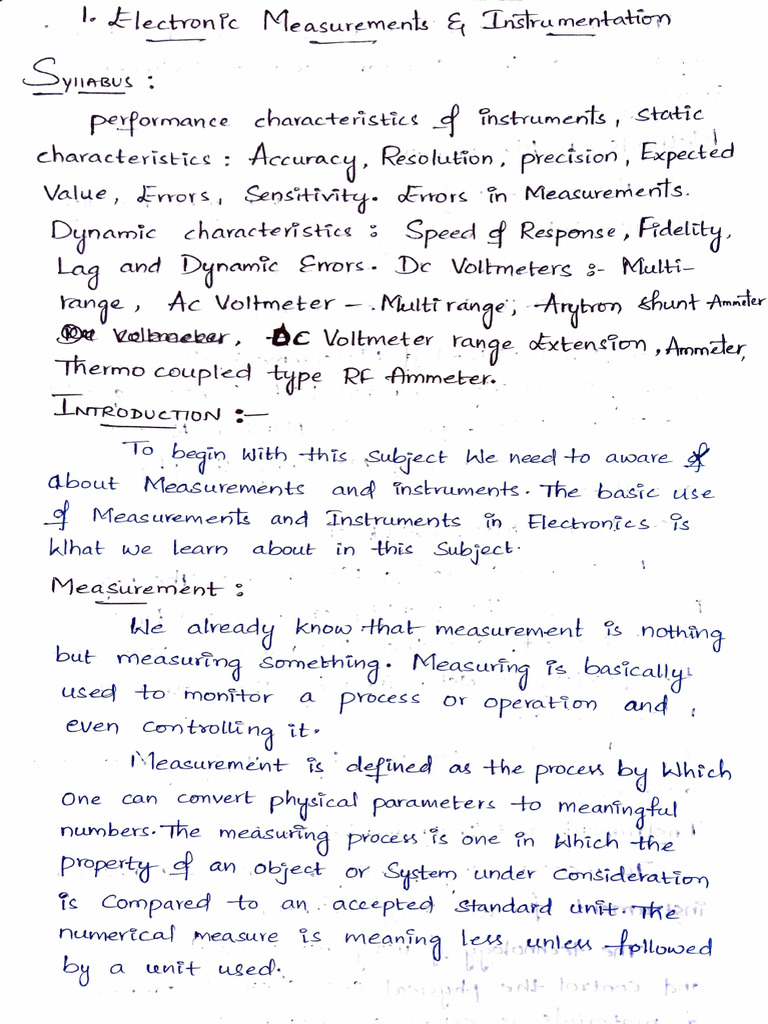 1. Electronic Measurements & Instrumentation
Syllabus :
performance characteristics of instruments, static
characteristics : Accuracy, Resolution, precision, Expected
Value, Errors, Sensitivity. Errors in Measurements.
Dynamic characteristics : Speed of Response, Fidelity,
Lag and Dynamic Errors. Dc Voltmeters :- Multi-
range, Ac Voltmeter - Multi range, Arytron shunt Ammeter
Voltmeter, DC Voltmeter range Extension, Ammeter,
Thermo coupled type RF Ammeter.
INTRODUCTION :-
To begin with this subject we need to aware of
about Measurements and instruments. The basic use
of Measurements and Instruments in Electronics is
What we learn about in this Subject.
Measurement :
We already know that measurement is nothing
but measuring something. Measuring is basically
used to monitor a process or operation and
even controlling it.
Measurement is defined as the process by Which
One can convert physical parameters to meaningful
numbers. The measuring process is one in Which the
property of an object or System under Consideration
is Compared to an accepted standard unit. The
numerical measure is meaning less unless followed
by a unit used.